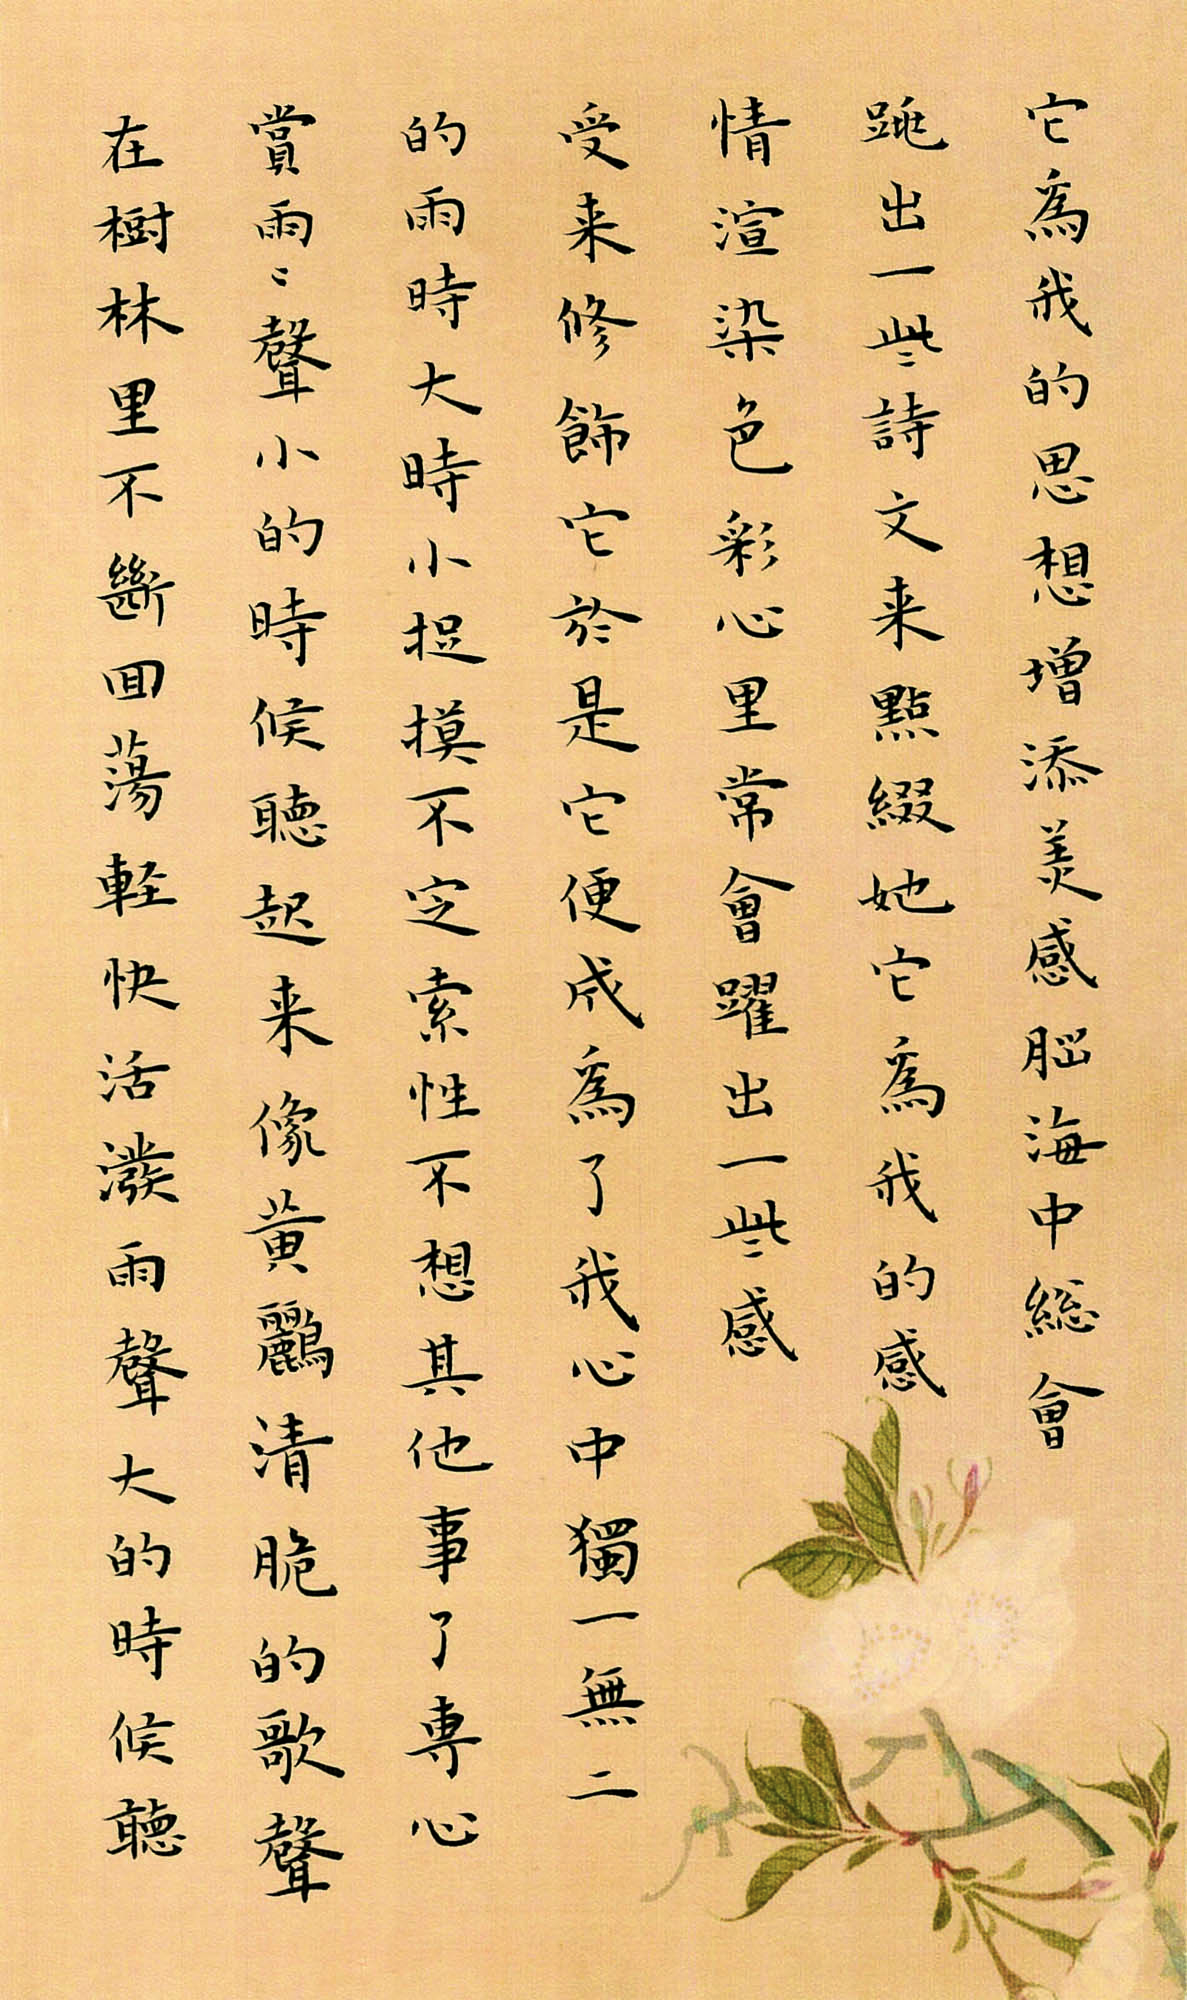 它為我的思想增添美感脳海中総會
跳出一些詩文来點綴她它為我的感
情渲染色彩心里常會躍出一些感
受来修飾它於是它便成為了我心中獨一無二
的雨時大時小捉摸不定索性不想其他事了專心
賞雨〻聲小的時候聽起来像黄鸝清脆的歌聲
在樹林里不斷回蕩軽快活潑雨聲大的時候聽